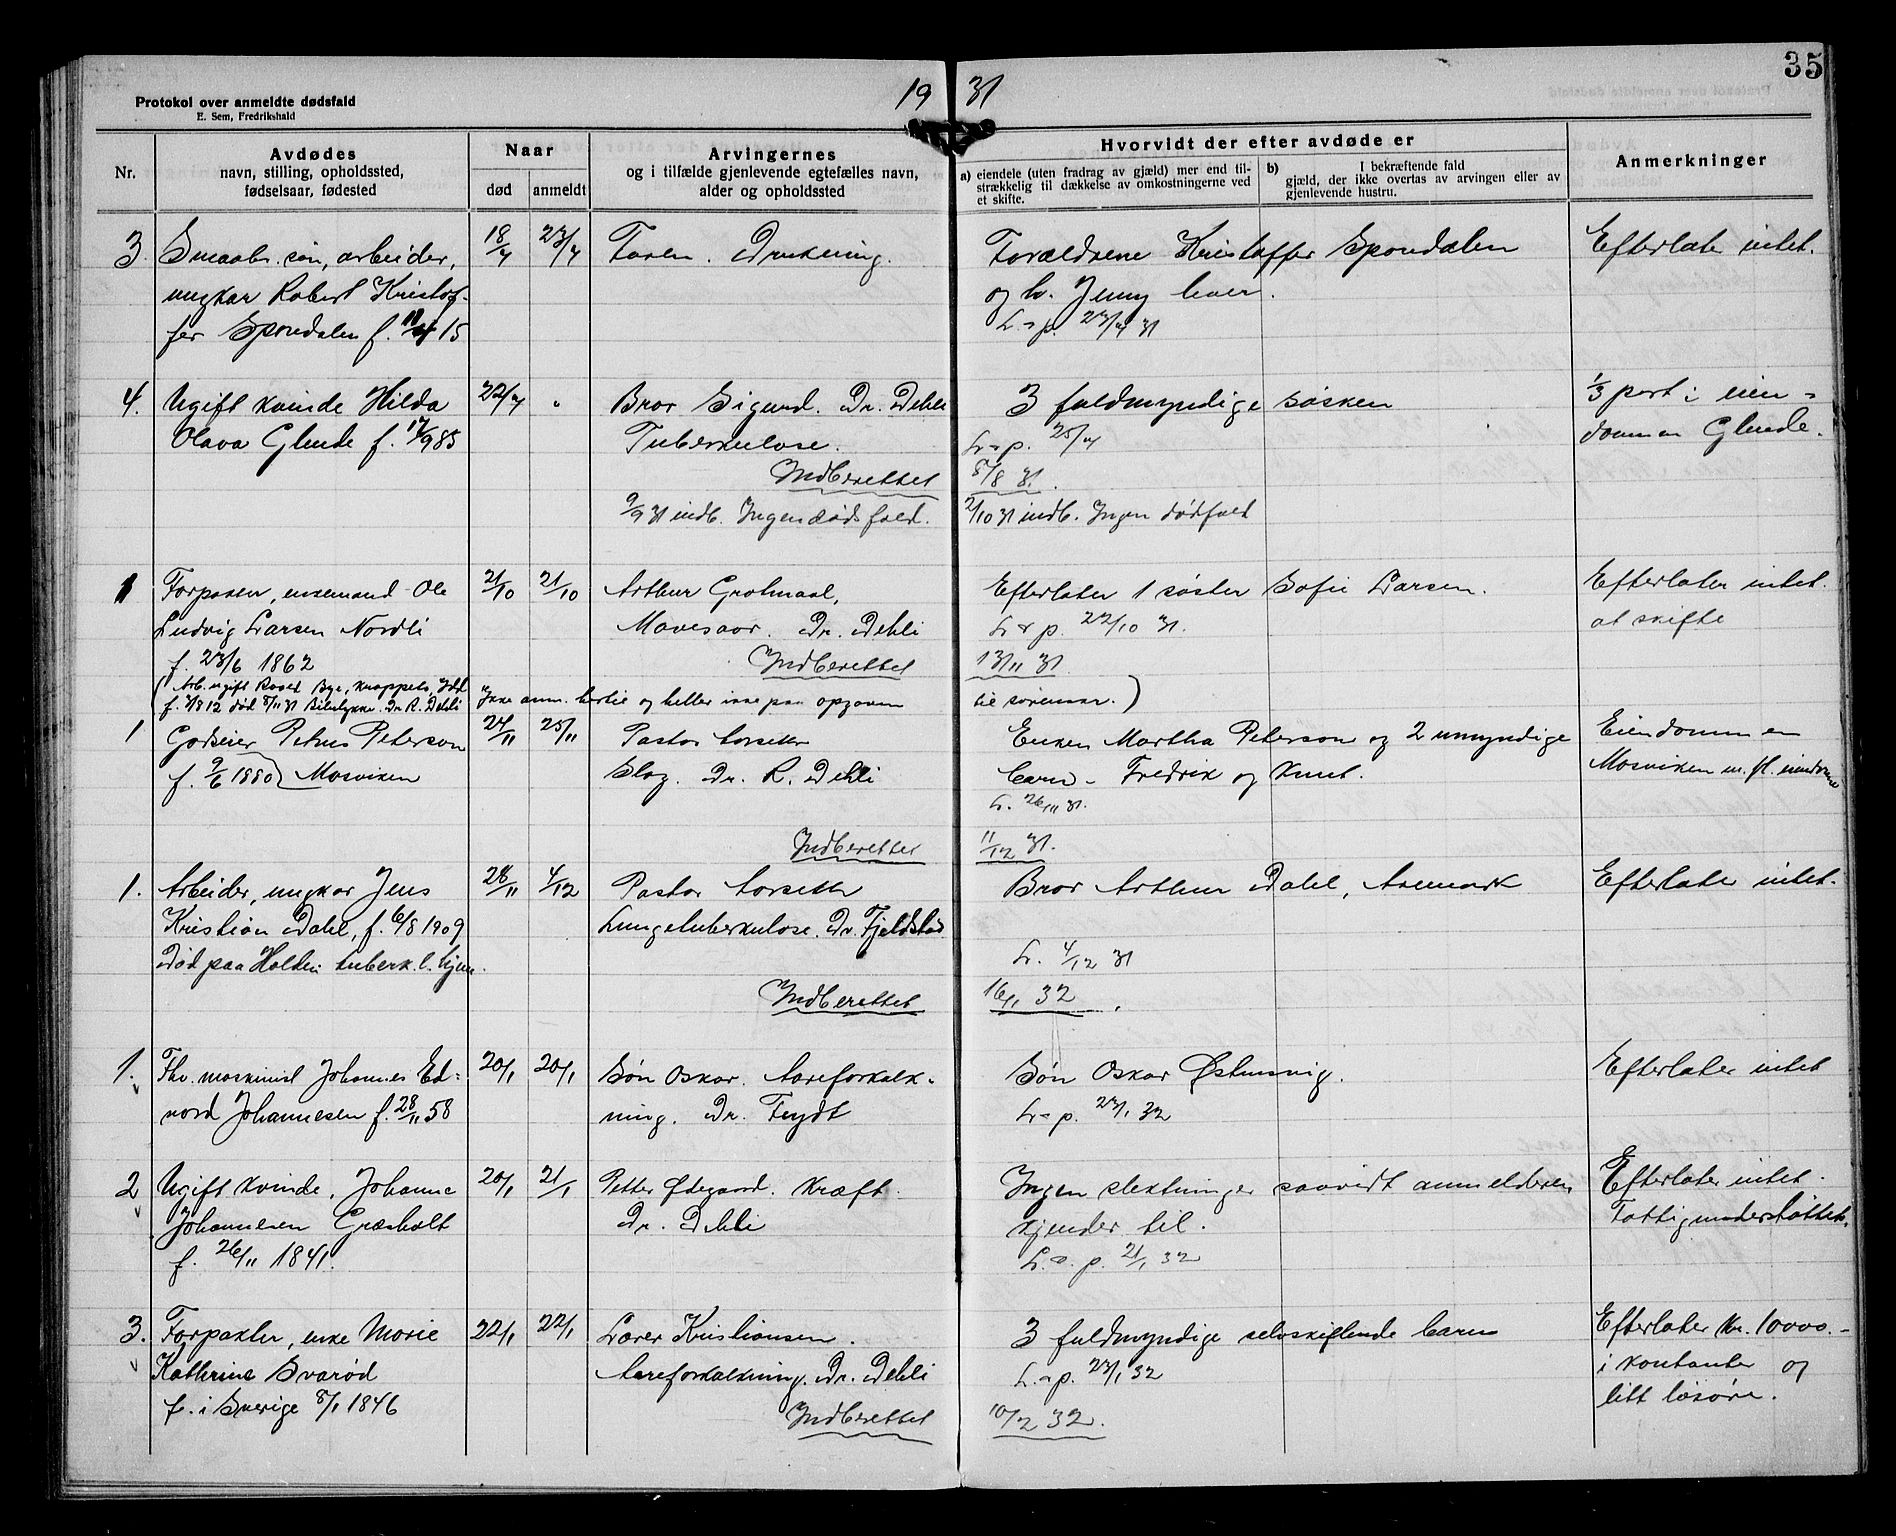 35
19 31
Protokol over anmeldte dødsfald
E. Sem, Fredrikshald
Nr.
Avdødes
navn, stilling, opholdssted,
fødselsaar, fødested
Naar
død
anmeldt
Arvingernes
og i tilfælde gjenlevende egtefælles navn,
alder og opholdssted
Hvorvidt der efter avdøde er
a) eiendele (uten fradrag av gjæld) mer end til-
strækkelig til dækkelse av omkostningerne ved
et skifte.
b) I bekræftende fald
gjæld, der ikke overtas av arvingen eller av
gjenlevende hustru.
Anmerkninger
3. Smaabr. søn, arbeider,
ungkar Robert Kristof-
fer Spondalen f. 11/4 15
18/4 23/4
Faren. Drukning.
Forældrene Kristoffer Spondalen
og h. Jenny lever.
L. p. 23/4 31
Efterlater intet.
4. Ugift kvinde Hilda
Olava Glende f. 17/9 85
22/4 "
Bror Sigurd. Dr. Dehli
Tuberkulose.
Indberettet
9/9 31 indb. Ingen dødsfald.
3 fuldmyndige søsken
L. p. 25/4
8/8 31.
2/10 31 indb. Ingen dødfald
1/3 part i eien-
dommen Glende.
1 Forpakter, enkemand Ole
Ludvig Larsen Nordli
f. 23/6 1862
21/10 21/10
Arthur Grotmaal,
Dr. Dehli
Indberettet
Efterlater 1 søster Sofie Larsen.
L. p. 22/10 31.
13/11 31
Efterlater intet
at skifte
(Arb. ugift Bye, Idd
død 8/11 31 Bilulykke. Dr R. Dehli
Ikke anm. hertil og heller ikke paa opgaven
til sorenskr.)
1 Godseier Petrus Peterson
f. 9/6 1880 Mosviken
24/11 25/11
Pastor Aarseth
Slag. Dr. R. Dehli
Indberettet
Enken Martha Peterson og 2 umyndige
barn - Fredrik og Knut.
L. 26/11 31.
11/12 31.
Eiendommen
Mosviken m. fl. eiendomme
1. Arbeider, ungkar Jens
Kristian Dahl, f. 6/8 1909
Død paa Halden tuberk.l. hjem.
28/11 4/12
Pastor Aarseth
Lungetuberkulose. Dr. Fjeldstad
Indberettet
Bror Arthur Dahl, Aremark
L. 4/12 31
16/1 32
Efterlater intet.
1. Fhv. maskinist Johannes Ed-
vard Johannesen f. 28/11 58
20/1 20/1
Søn Oskar. Aareforkalk-
ning. Dr. Feydt
Søn Oskar Østensvig.
L. p. 23/1 32
Efterlater intet
2 Ugift kvinde, Johanne
Johannesen Græsholt
f. 26/11 1841.
20/1 21/1
Petter Ødegaard. Kræft.
Dr. Dehli
Ingen slektninger saavidt anmelderen
kjender til.
L. p. 21/1 32
Efterlater intet.
Fattigunderstøttet.
3. Forpakter, enke Marie
Kathrine Svarød
f. i Sverige 8/1 1846
22/1 22/1
Lærer Kristiansen.
Aareforkalkning. Dr. Dehli
Indberettet
3 fuldmyndige selvskiftende barn
L. p. 23/1 32
10/2 32.
Efterlater kr. 10000.-
i kontanter og
litt løsøre.